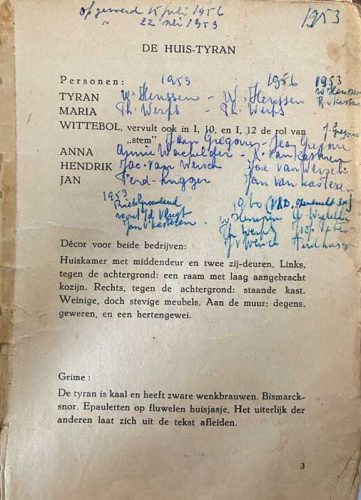 opgevoerd 15 juli 1956
22 mei 1953
1953
DE HUIS-TYRAN
Personen: 1953 1956 1953
TYRAN W. Henssen - W. Henssen
MARIA Th. Werfs - Th. Werfs
WITTEBOL, vervult ook in I, 10, en I, 12 de rol van
„stem” Jean Gregoire Jean Gregoire
ANNA Annie
HENDRIK Jac. van Wersch Jac van Wersch
JAN Ferd. Jan van Kasteren
1953
1960
Th. Werfs
J. v. Wersch
Décor voor beide bedrijven:
Huiskamer met middendeur en twee zij-deuren. Links,
tegen de achtergrond: een raam met laag aangebracht
kozijn. Rechts, tegen de achtergrond: staande kast.
Weinige, doch stevige meubels, Aan de muur: degens,
geweren, en een hertengewei.
Grime:
De tyran is kaal en heeft zware wenkbrauwen. Bismarck-
snor. Epauletten op fluwelen huisjasje. Het uiterlijk der
anderen laat zich uit de tekst afleiden.
3